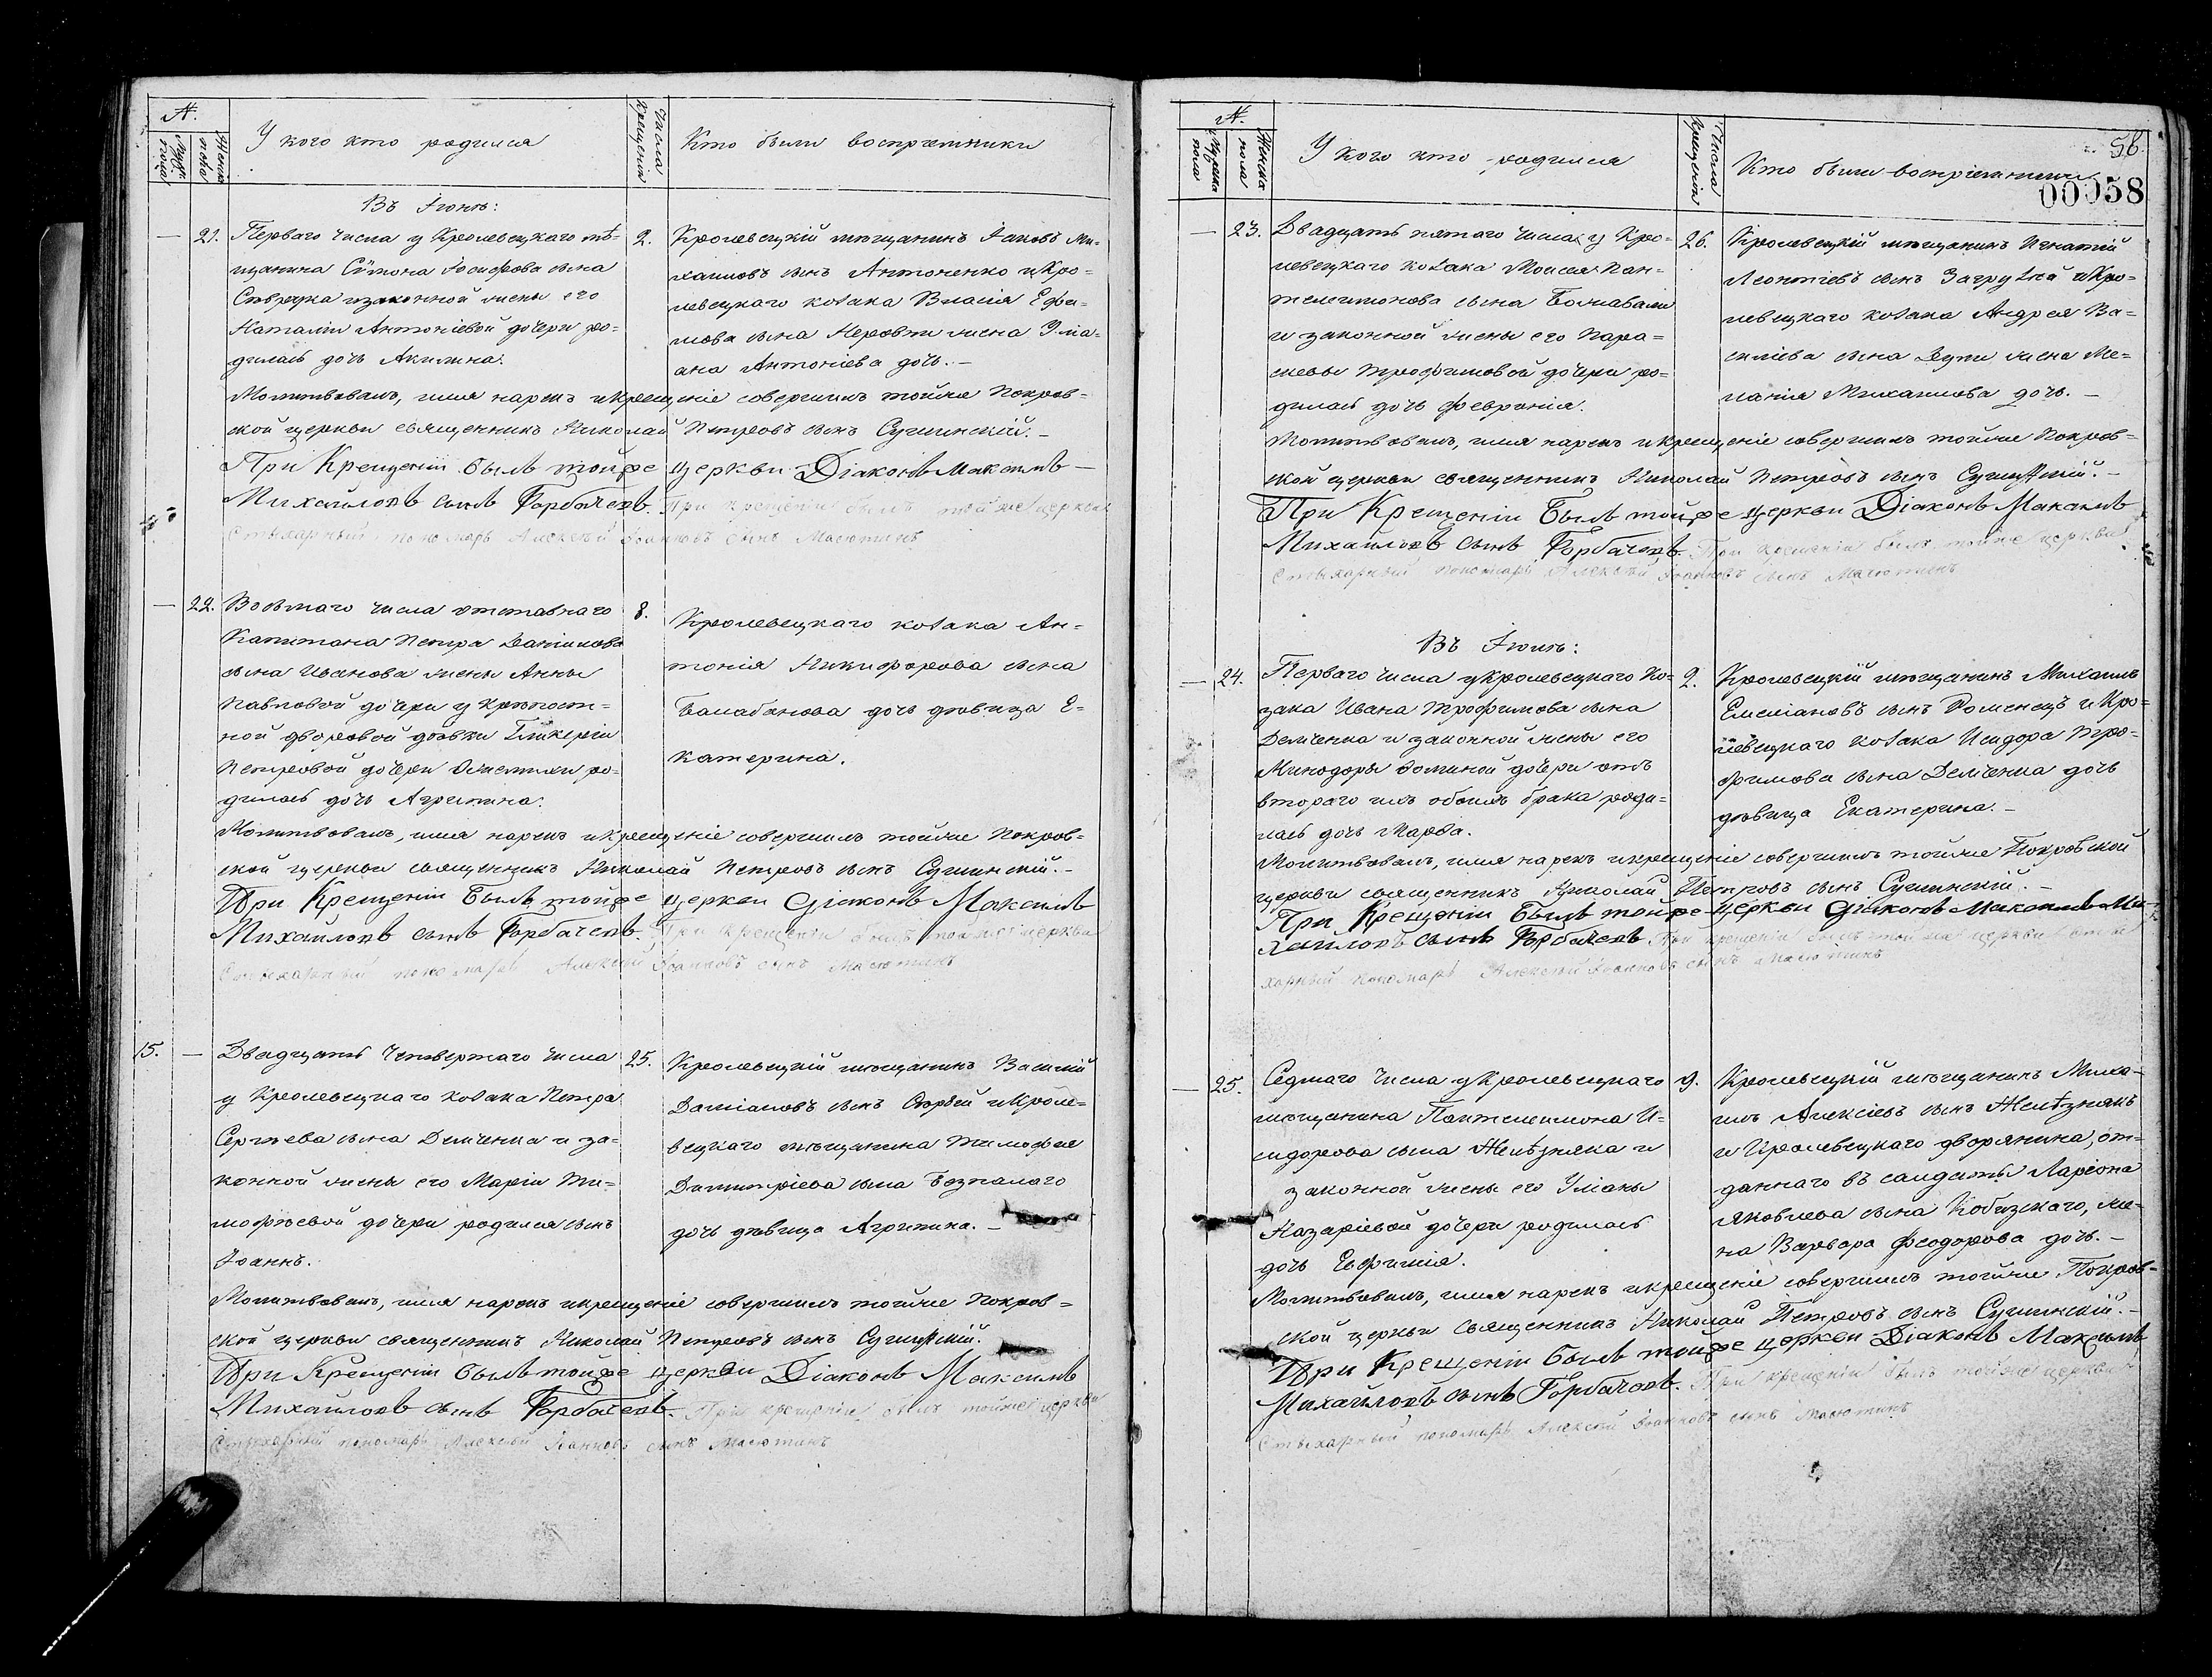 №.
Мужск. пола
Женска пола
У кого кто родился
Числа Крещенія
Кто были воспріемники
Въ Іюнѣ:
— 21. Перваго числа у Кролевецкаго мѣ-
щанина Сѵмона Іосифова сына
и законной жены его
Наталіи Антоніевой дочери ро-
дилась дочь Акилина.
2. Кролевецкій мѣщанинъ Іаковъ Ми-
хаиловъ сынъ Антоненко и Кро-
левецкаго козака Власія Ефи-
мова сына жена Улiа-
ана Антоніева дочь. —
Молитвовалъ, имя нарекъ и крещеніе совершилъ тойже Покров-
ской церкви священникъ Николай Петровъ сынъ Сушинскій. —
При Крещеніи былъ тойже церкви Діаконъ Максимъ —
Михайловъ сынъ Горбачевъ. При крещеніи былъ тойже церкви
Стихарный пономарь Алексѣй Іоанновъ сынъ Масютинъ
— 22. Восьмаго числа отставнаго
Капитана Петра Даніилова
сына Иванова жены Анны
Павловой дочери у крѣпост-
ной дворовой дѣвки Гликеріи
Петровой дочери ро-
дилась дочь Агрипина.
8. Кролевецкаго козака Ан-
тонія Никифорова сына
Балабанова дочь дѣвица Е-
катерина.
Молитвовалъ, имя нарекъ и крещеніе совершилъ тойже Покров-
ской церкви священникъ Николай Петровъ сынъ Сушинскій. —
При Крещеніи былъ тойже церкви Діаконъ Максимъ
Михайловъ сынъ Горбачевъ. При крещеніи былъ тойже церкви
Стихарный пономарь Алексѣй Іоанновъ сынъ Масютинъ
15. — Двадцать четвертаго числа
у Кролевецкаго козака Петра
Сергѣева сына Демченка и за-
конной жены его Маріи Ти-
мофѣевой дочери родился сынъ
Іоаннъ.
25. Кролевецкій мѣщанинъ Василій
Даміановъ сынъ Сѣрый и Кроле-
вецкаго мѣщанина Тимофея
Димитріева сына Безпалаго
дочь дѣвица Агрипина. —
Молитвовалъ, имя нарекъ и крещеніе совершилъ тойже Покров-
ской церкви священникъ Николай Петровъ сынъ Сушинскій.
При Крещеніи былъ тойже церкви Діаконъ Максимъ
Михайловъ сынъ Горбачевъ. При крещеніи былъ тойже церкви
Стихарный пономарь Алексѣй Іоанновъ сынъ Масютинъ
№.
Мужска пола
Женска пола
У кого кто родился
Числа Крещенія
Кто были воспріемники
58.
00058
— 23. Двадцать пятаго числа у Кро-
левецкаго козака Моисея Пан-
телеимонова сына
и законной жены его Пара-
скевы Трофимовой дочери ро-
дилась дочь Февронія.
26. Кролевецкій мѣщанинъ Игнатій
Леонтіевъ сынъ и Кро-
левецкаго козака Андрея Ва-
силіева сына жена Ме-
ланія Михаилова дочь. —
Молитвовалъ, имя нарекъ и крещеніе совершилъ тойже Покров-
ской церкви священникъ Николай Петровъ сынъ Сушинскій. —
При Крещеніи Былъ тойже церкви Діаконъ Максимъ
Михайловъ сынъ Горбачевъ. При крещеніи былъ тойже церкви
Стихарный пономарь Алексѣй Іоанновъ сынъ Масютинъ
Въ Іюлѣ:
— 24. Перваго числа у Кролевецкаго ко-
зака Ивана Трофимова сына
Демченка и законной жены его
Минодоры Фоминой дочери отъ
втораго имъ обоимъ брака роди-
лась дочь Марѳа.
2. Кролевецкій мѣщанинъ Михаилъ
Емеліановъ сынъ Роменецъ и Кро-
левецкаго козака Исидора Тро-
фимова сына Демченка дочь
дѣвица Екатерина. —
Молитвовалъ, имя нарекъ и крещеніе совершилъ тойже Покровской
церкви священникъ Николай Петровъ сынъ Сушинскій. —
При Крещеніи Былъ тойже церкви Діаконъ Максимъ Ми-
хайловъ сынъ Горбачевъ При крещеніи былъ тойже церкви Сти-
харный пономарь Алексѣй Іоанновъ сынъ Масютинъ
— 25. Седмаго числа у Кролевецкаго
мѣщанина Пантелеимона И-
сидорова сына Желѣзняка и
законной жены его Уліаны
Назаріевой дочери родилась
дочь Евфимія.
9. Кролевецкій мѣщанинъ Миха-
илъ Алексіевъ сынъ Желѣзнякъ
и Кролевецкаго дворянина, от-
даннаго въ салдаты Ларіона
Яковлева сына Кобизскаго, же-
на Варвара Феодорова дочь. —
Молитвовалъ, имя нарекъ и крещеніе совершилъ тойже Покров-
ской церкви священникъ Николай Петровъ сынъ Сушинскій. —
При Крещеніи былъ тойже церкви Діаконъ Максимъ
Михайловъ сынъ Горбачовъ. При крещеніи былъ тойже церкви
Стихарный пономарь Алексѣй Іоанновъ сынъ Масютинъ